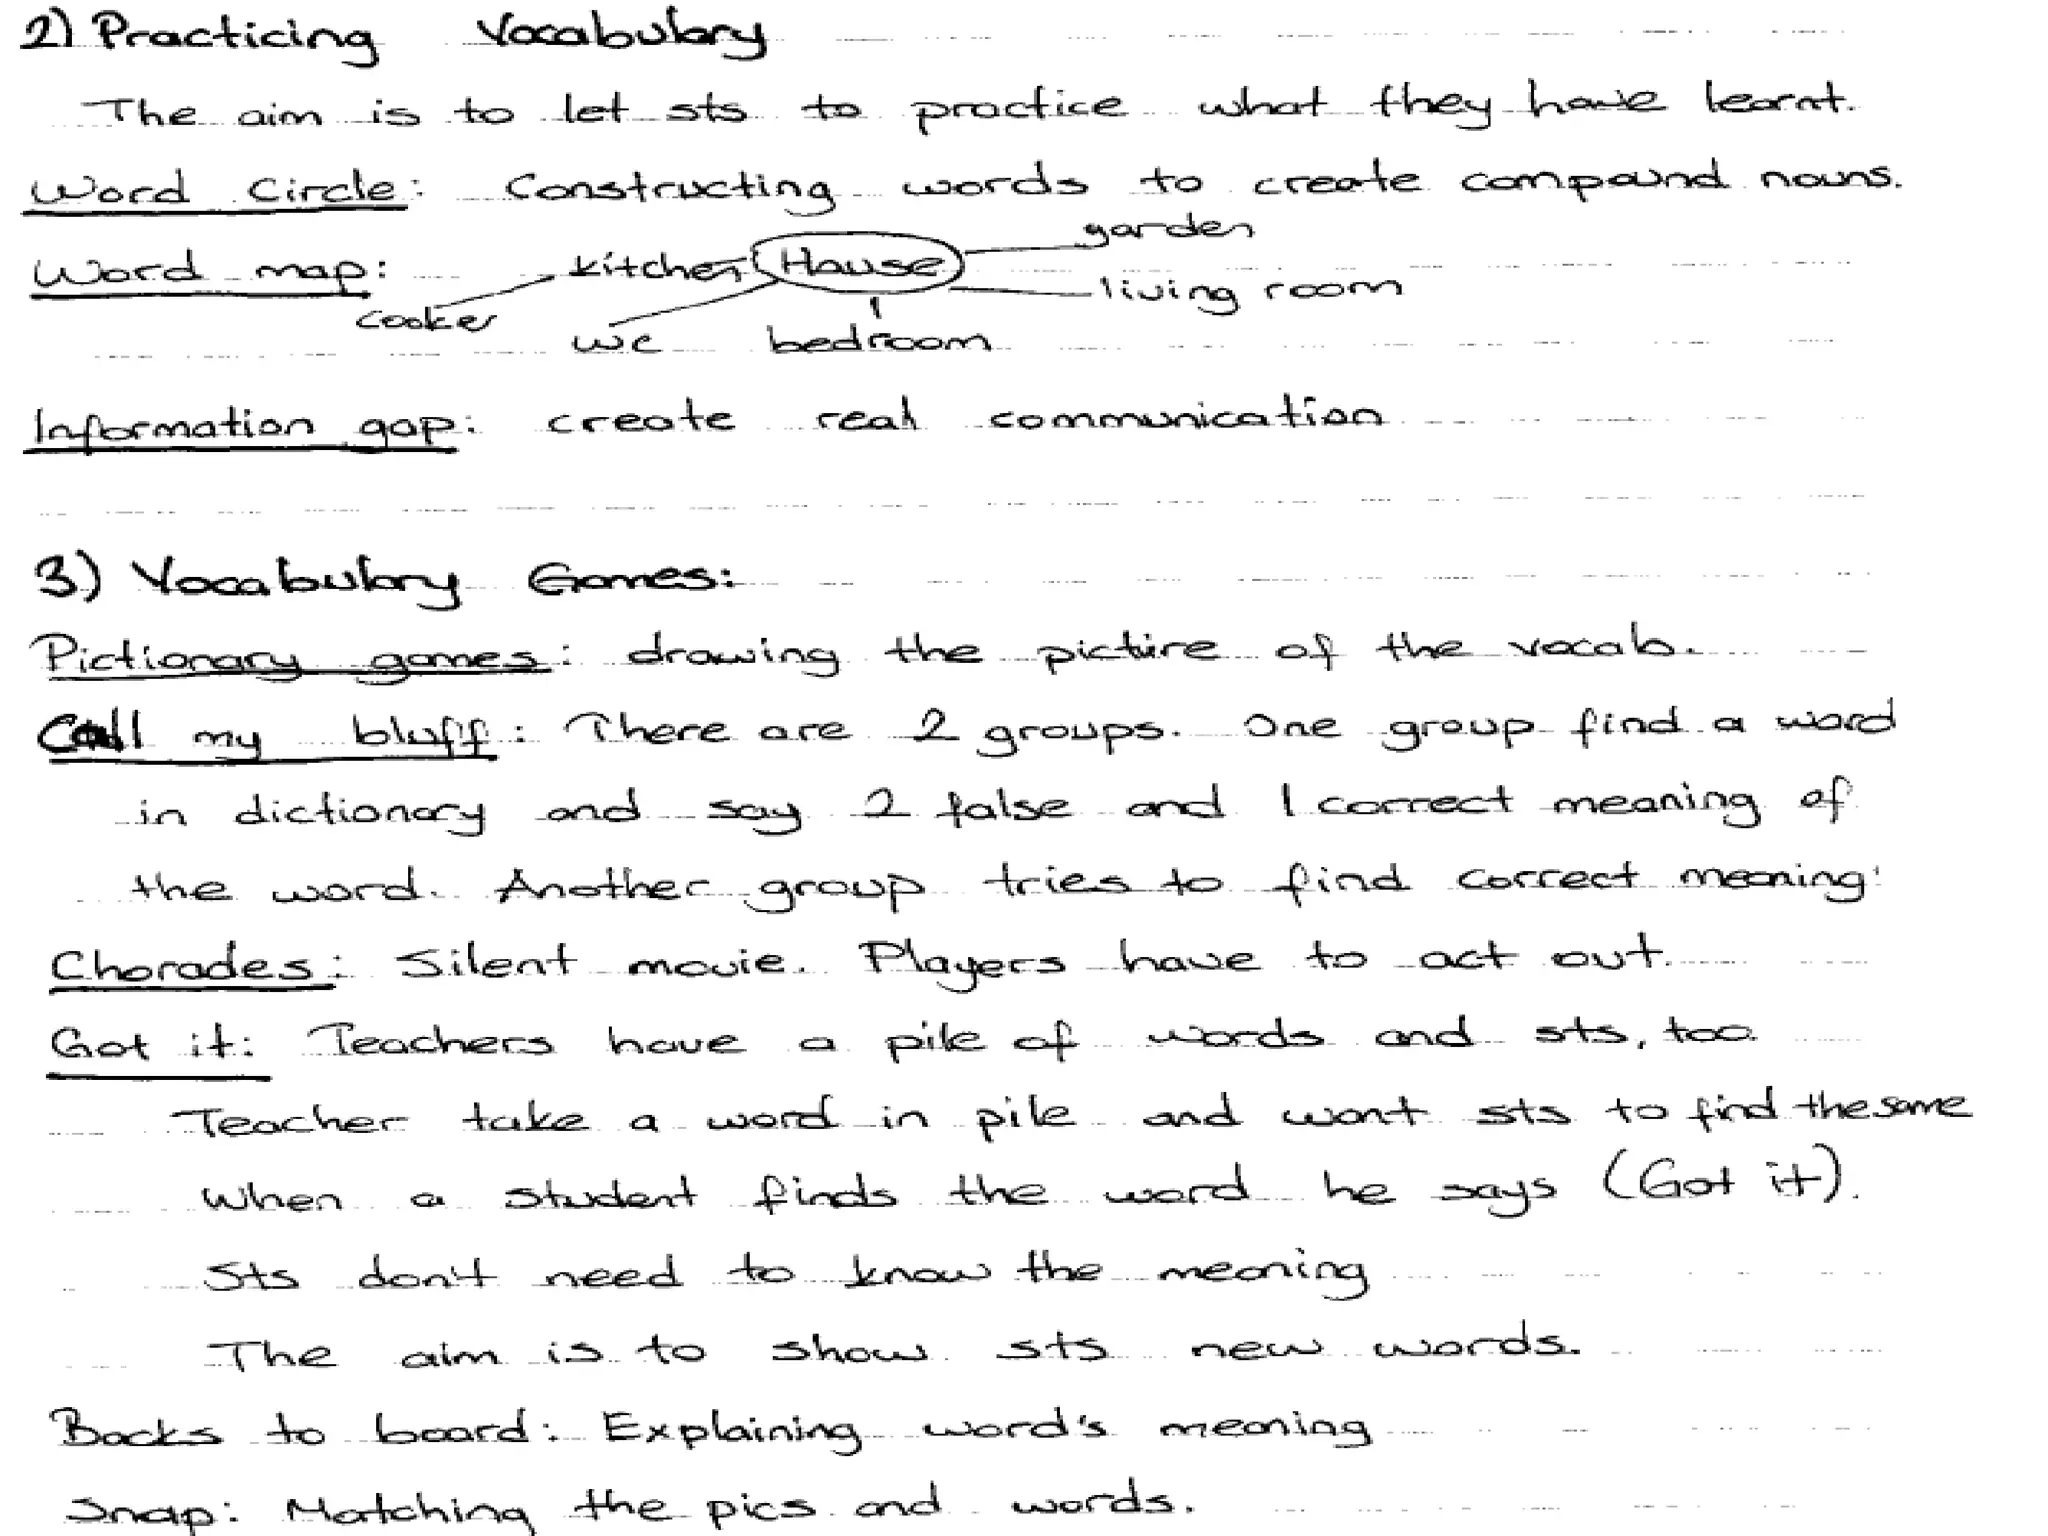 2) Practicing Vocabulary
The aim is to let sts to practice what they have learnt.
Word Circle: Constructing words to create compound nouns.
garden
Word map: kitchen House
living room
cooker
wc bedroom
Information gap: create real communication
3) Vocabulary Games:
Pictionary games: drawing the picture of the vocab.
Call my bluff: There are 2 groups. One group find a word
in dictionary and say 2 false and 1 correct meaning of
the word. Another group tries to find correct meaning.
Charades: Silent movie. Players have to act out.
Got it: Teachers have a pile of words and sts, too.
Teacher take a word in pile and want sts to find the same
when a student finds the word he says (Got it).
Sts don't need to know the meaning
The aim is to show sts new words.
Backs to board: Explaining word's meaning
Snap: Matching the pics and words.